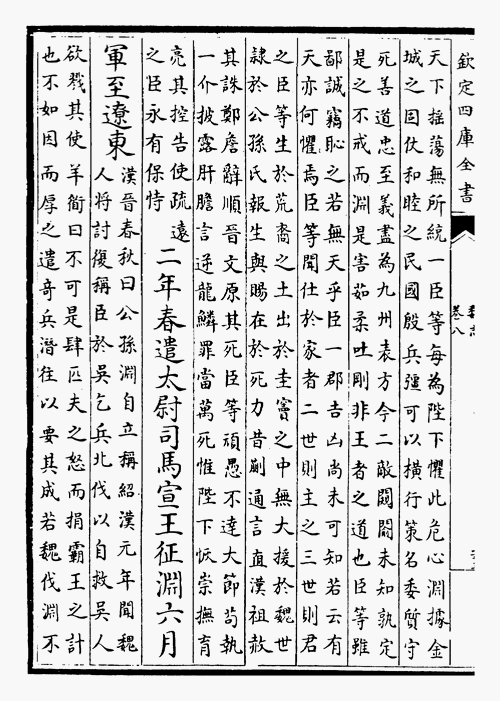 欽定四庫全書
卷八
天下搖蕩無所統一臣等每為陛下懼此危心淵據金
城之固仗和睦之民國殷兵彊可以橫行策名委質守
死善道忠至義盡為九州表方今二敵闚閻未知孰定
是之不戒而淵是害茹柔吐剛非王者之道也臣等雖
鄙誠竊恥之若無天乎臣一郡吉凶尚未可知若云有
天亦何懼焉臣等聞仕於家者二世則主之三世則君
之臣等生於荒裔之土出於圭竇之中無大援於魏世
隸於公孫氏報生與賜在於死力昔蒯通言直漢祖赦
其誅鄭詹辭順晉文原其死臣等頑愚不達大節茍執
一介披露肝膽言逆龍鱗罪當萬死惟陛下恢崇撫育
亮其控告使疏遠
之臣永有保恃
二年春遣太尉司馬宣王征淵六月
軍至遼東
漢晉春秋曰公孫淵自立稱紹漢元年聞魏
人將討復稱臣於吳乞兵北伐以自救吳人
欲戮其使羊衜曰不可是肆匹夫之怒而捐霸王之計
也不如因而厚之遣奇兵潛往以要其成若魏伐淵不